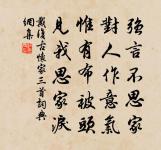 強言不思家
對人作意氣
惟有布被頭
見我思家淚
戴復古懷家三首詞典
網集